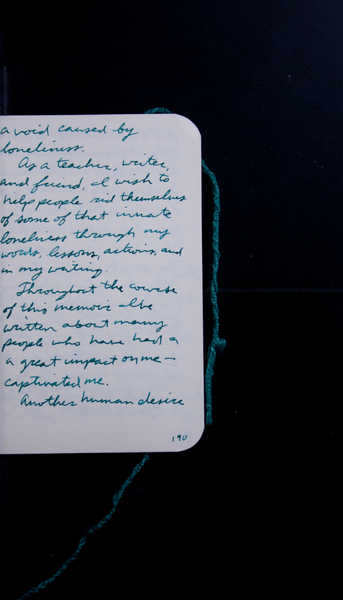 a void caused by
loneliness.
As a teacher, writer,
and friend, I wish to
help people rid themselves
of some of that innate
loneliness through my
words, lessons, actions, and
in my writing.
Throughout the course
of this memoir I've
written about many
people who have had a
a great impact on me—
captivated me.
Another human desire
190